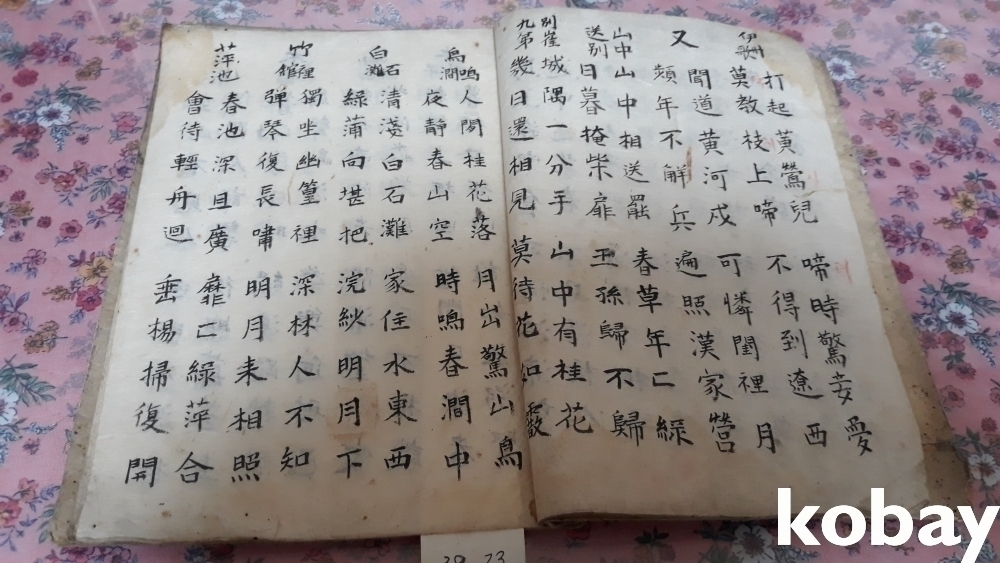 伊州歌
打起黃鶯兒 啼時驚妾
莫教枝上啼 不得到遼西
又
聞道黃河戍 可憐閨裡月
頻年不解兵 遍照漢家營
山中送別
山中相送罷 春草年〻綠
日暮掩柴扉 王孫歸不歸
別崔九第
城隅一分手 山中有桂花
幾日還相見 莫待花如霰
鳥鳴澗
人閑桂花落 月出驚山鳥
夜靜春山空 時鳴春澗中
白石灘
清淺白石灘 家住水東西
綠蒲向堪把 浣紗明月下
竹裡館
獨坐幽篁裡 深林人不知
彈琴復長嘯 明月來相照
萍池
春池深且廣 靡〻綠萍合
會待輕舟迴 垂楊掃復開
kobay